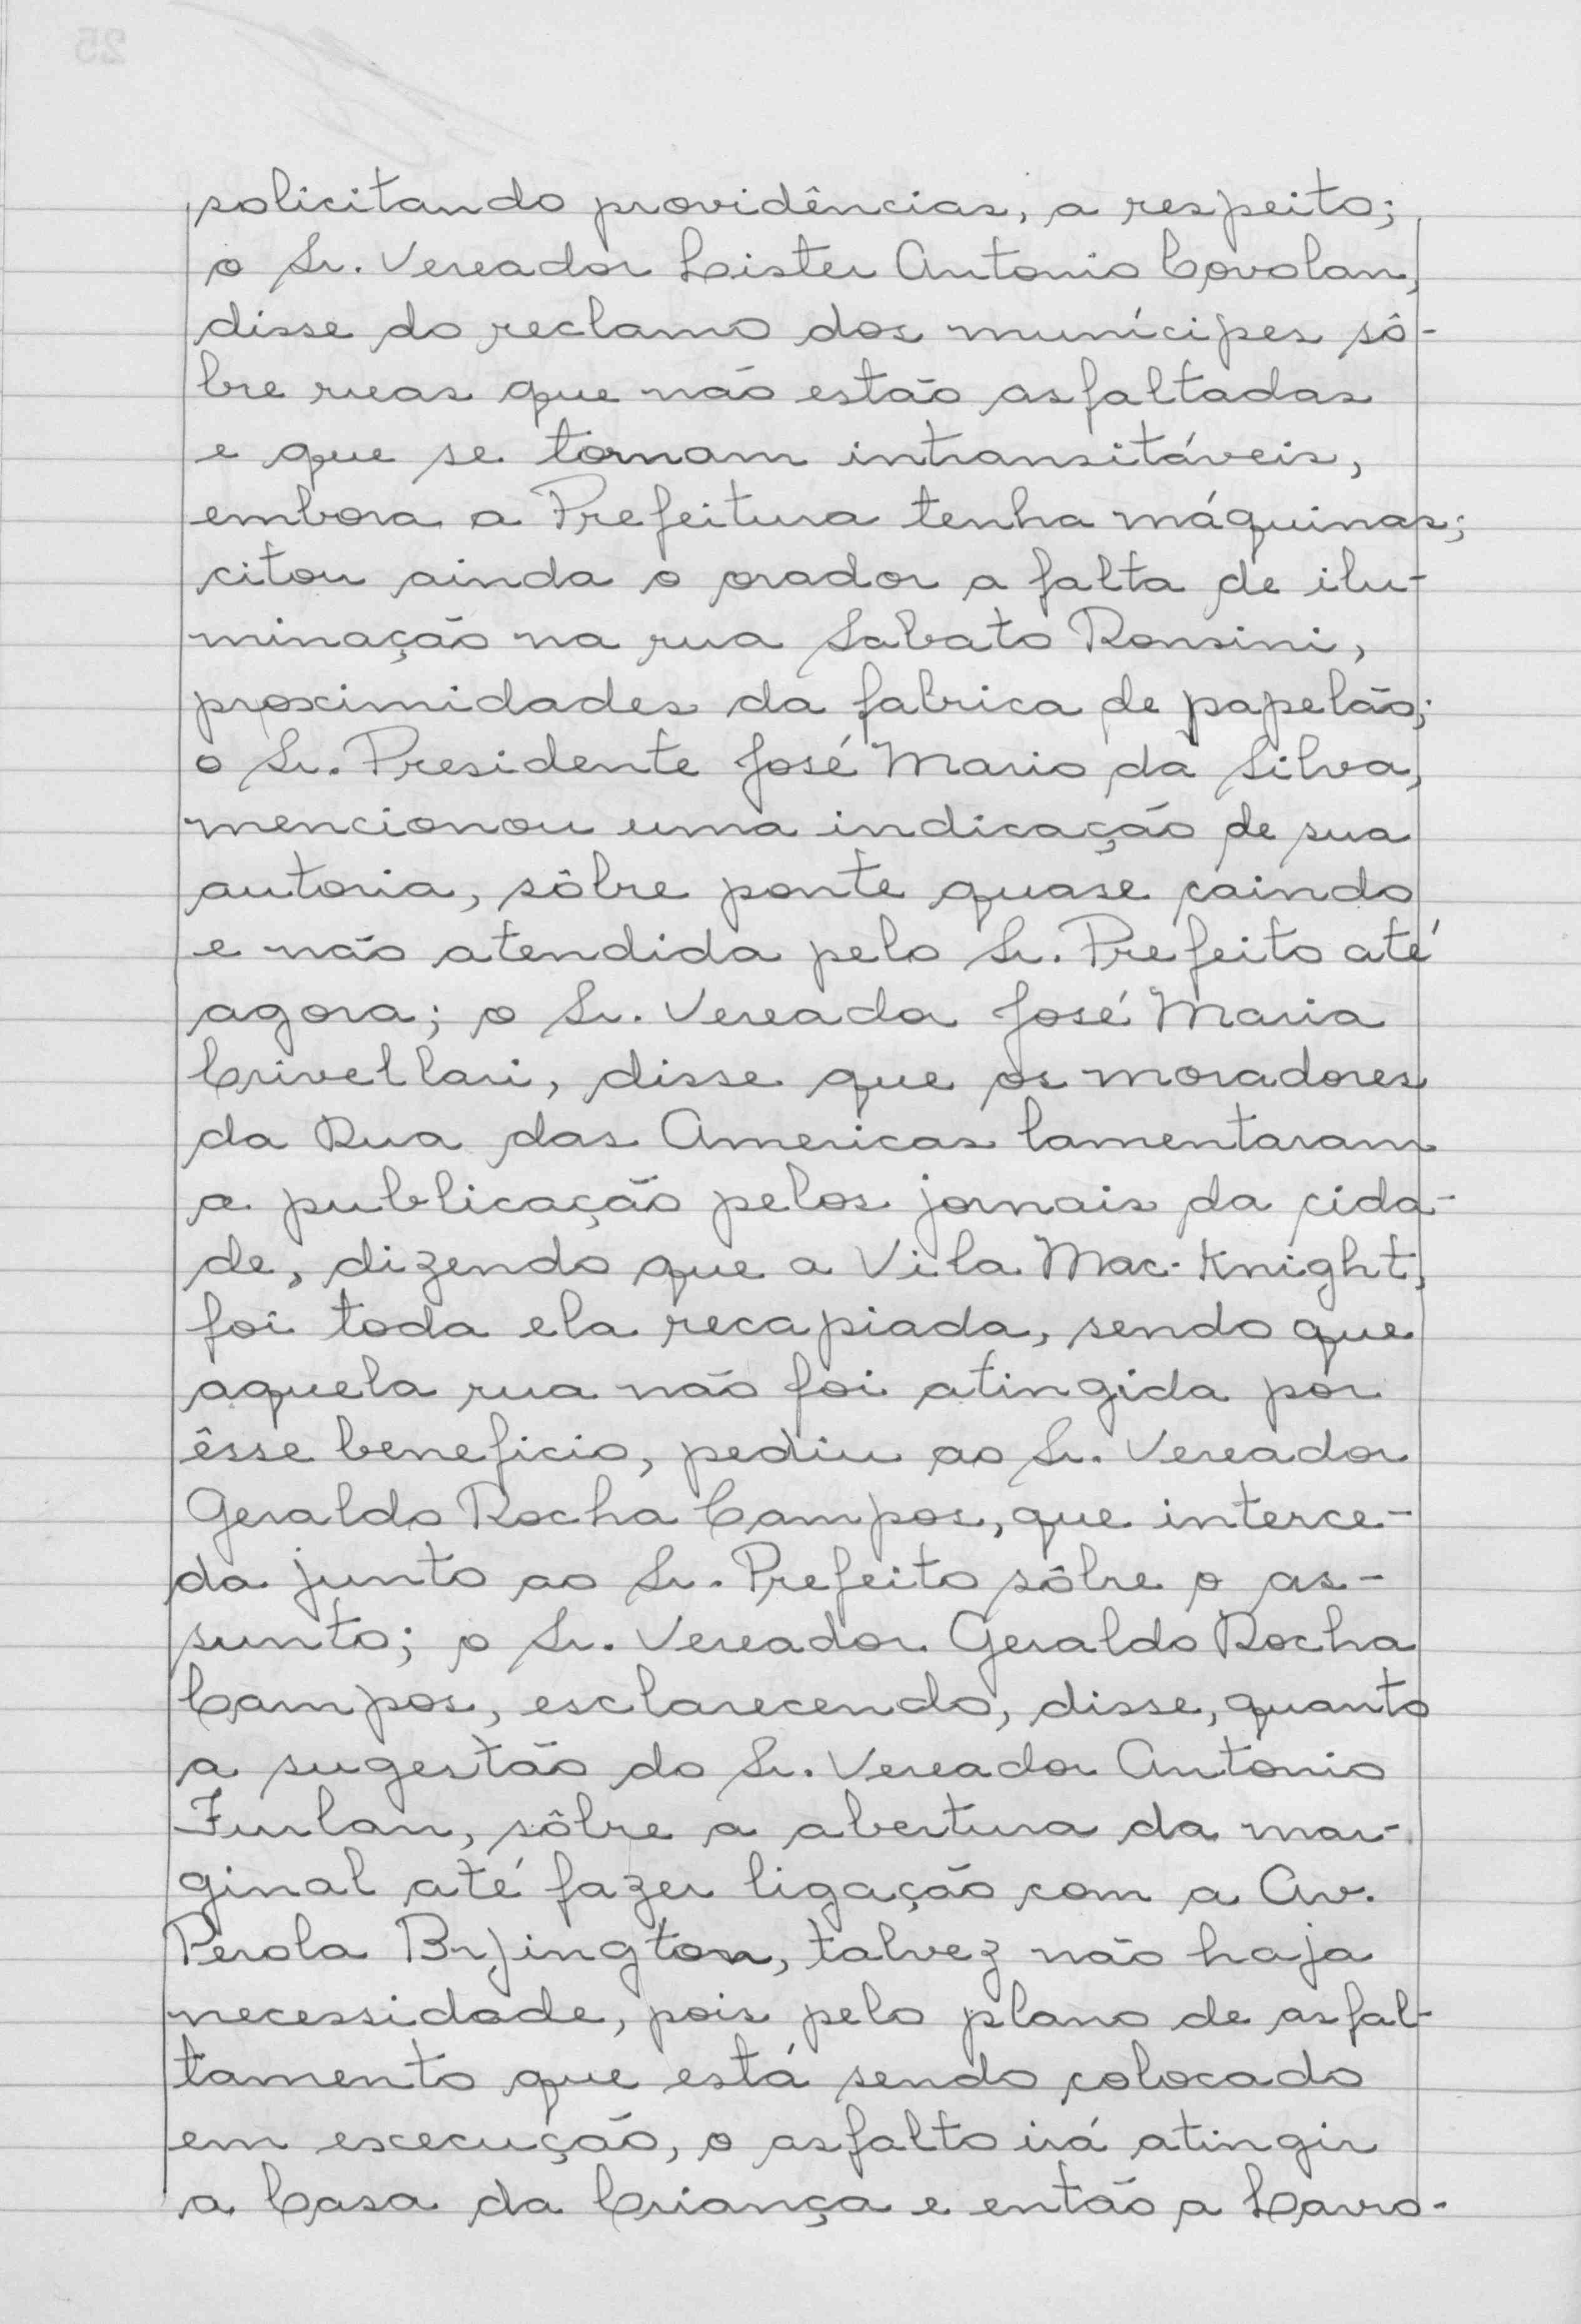 solicitando providências, a respeito;
o Sr. Vereador Lister Antonio Covolan,
disse do reclamo dos munícipes sô-
bre ruas que não estão asfaltadas
e que se tornam intransitáveis,
embora a Prefeitura tenha máquinas;
citou ainda o orador a falta de ilu-
minação na rua Sabato Ronsini,
proximidades da fabrica de papelão;
o Sr. Presidente José Mario da Silva,
mencionou uma indicação de sua
autoria, sôbre ponte quase caindo
e não atendida pelo Sr. Prefeito até
agora; o Sr. Vereador José Maria
Crivellari, disse que os moradores
da Rua das Americas lamentaram
a publicação pelos jornais da cida-
de, dizendo que a Vila Mac-Knight,
foi toda ela recapiada, sendo que
aquela rua não foi atingida por
êsse beneficio, pediu ao Sr. Vereador
Geraldo Rocha Campos, que interce-
da junto ao Sr. Prefeito sôbre o as-
sunto; o Sr. Vereador Geraldo Rocha
Campos, esclarecendo, disse, quanto
a sugestão do Sr. Vereador Antonio
Furlan, sôbre a abertura da mar-
ginal até fazer ligação com a Av.
Perola Byington, talvez não haja
necessidade, pois pelo plano de asfal-
tamento que está sendo colocado
em execução, o asfalto irá atingir
a Casa da Criança e então a Lavro-
25